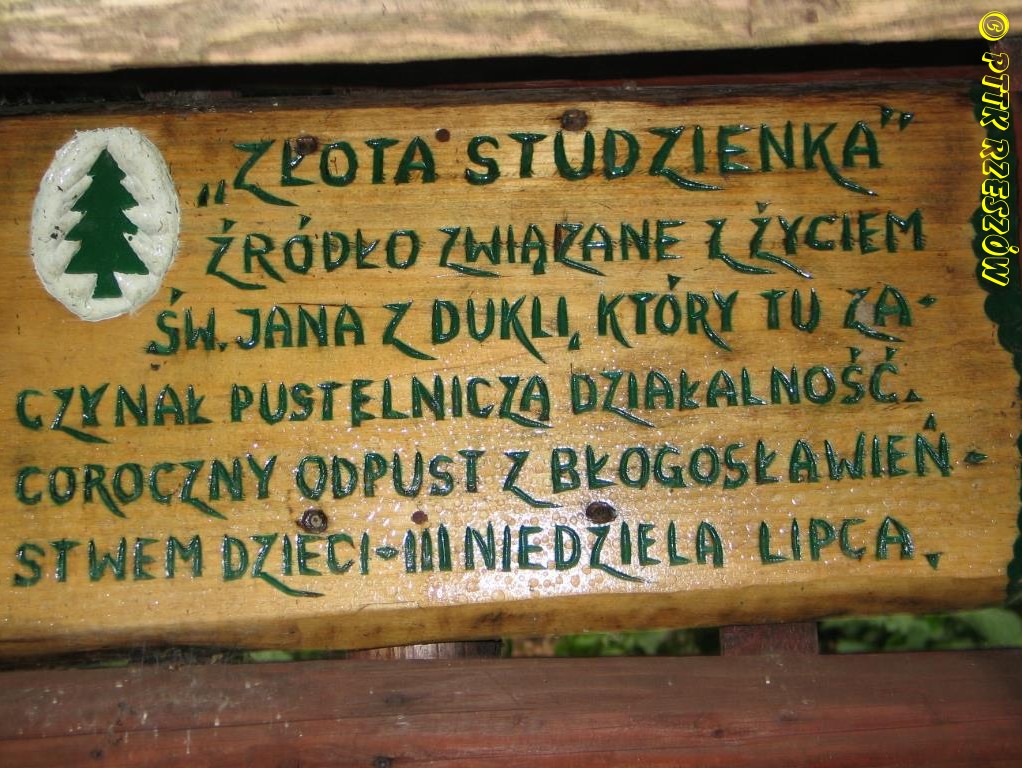 „ZŁOTA STUDZIENKA”
ŹRÓDŁO ZWIĄZANE Z ŻYCIEM
ŚW. JANA Z DUKLI, KTÓRY TU ZA-
CZYNAŁ PUSTELNICZĄ DZIAŁALNOŚĆ.
COROCZNY ODPUST Z BŁOGOSŁAWIEŃ-
STWEM DZIECI-III NIEDZIELA LIPCA.
© PTTK RZESZÓW